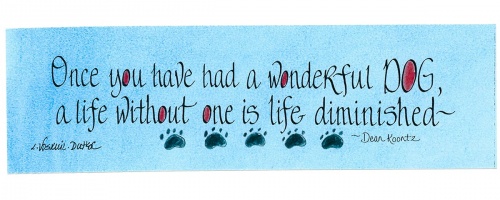 Once you have had a wonderful DOG,
a life without one is life diminished~
~Dean Koontz